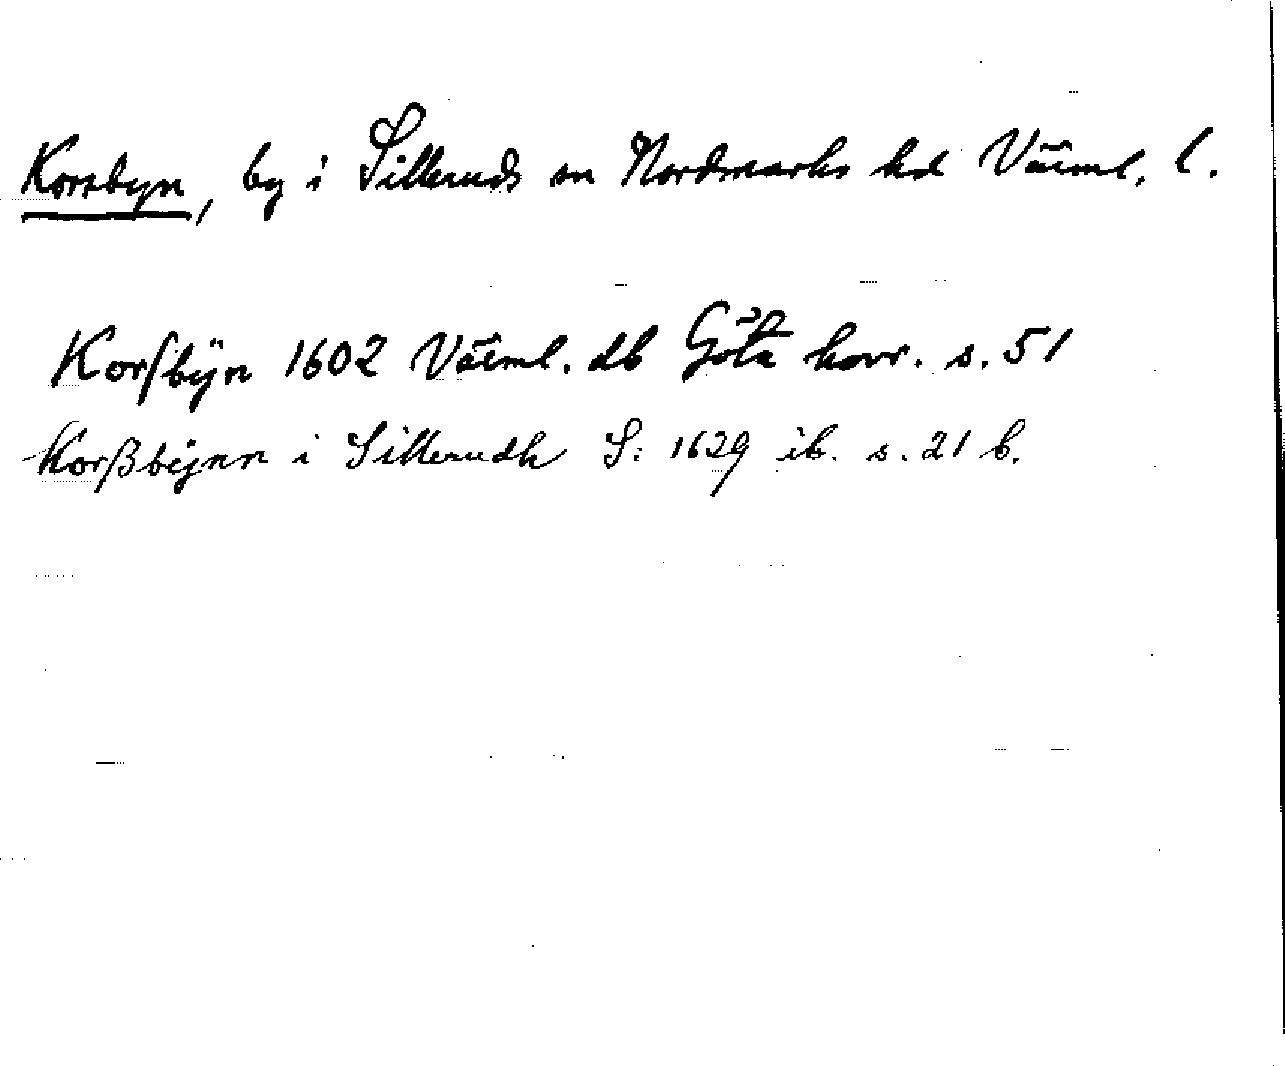 Korsbyn, by i Silleruds sn Nordmarks hd Värml. l.
Korſbÿn 1602 Värml. db Göta hovr. s. 51
Korßbÿnn i Sillerudh S: 1629 ib. s. 21 b.